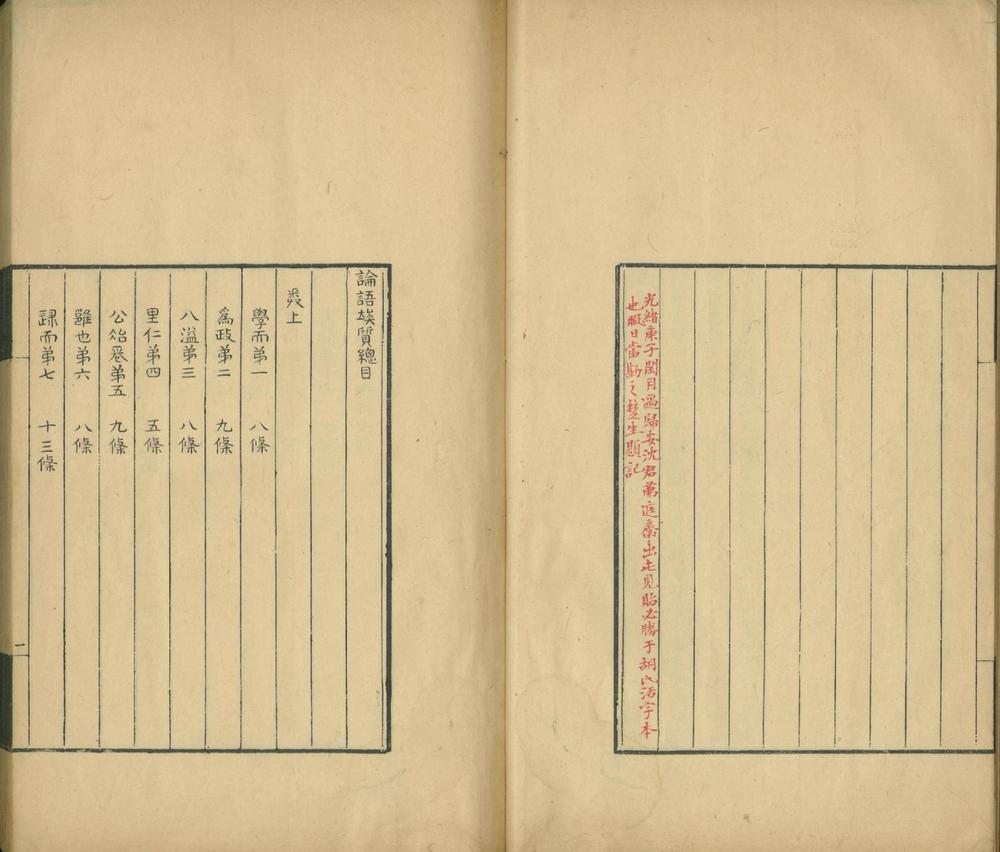 光緒庚子閏月過歸安沈君蕭庭齋出此見貽必勝于胡氏活字本
也暇日當勘之楚生題記
論語竢質總目
卷上
學而弟一 八條
爲政弟二 九條
八溢弟三 八條
里仁弟四 五條
公冶萇弟五 九條
雝也弟六 八條
述而弟七 十三條
二